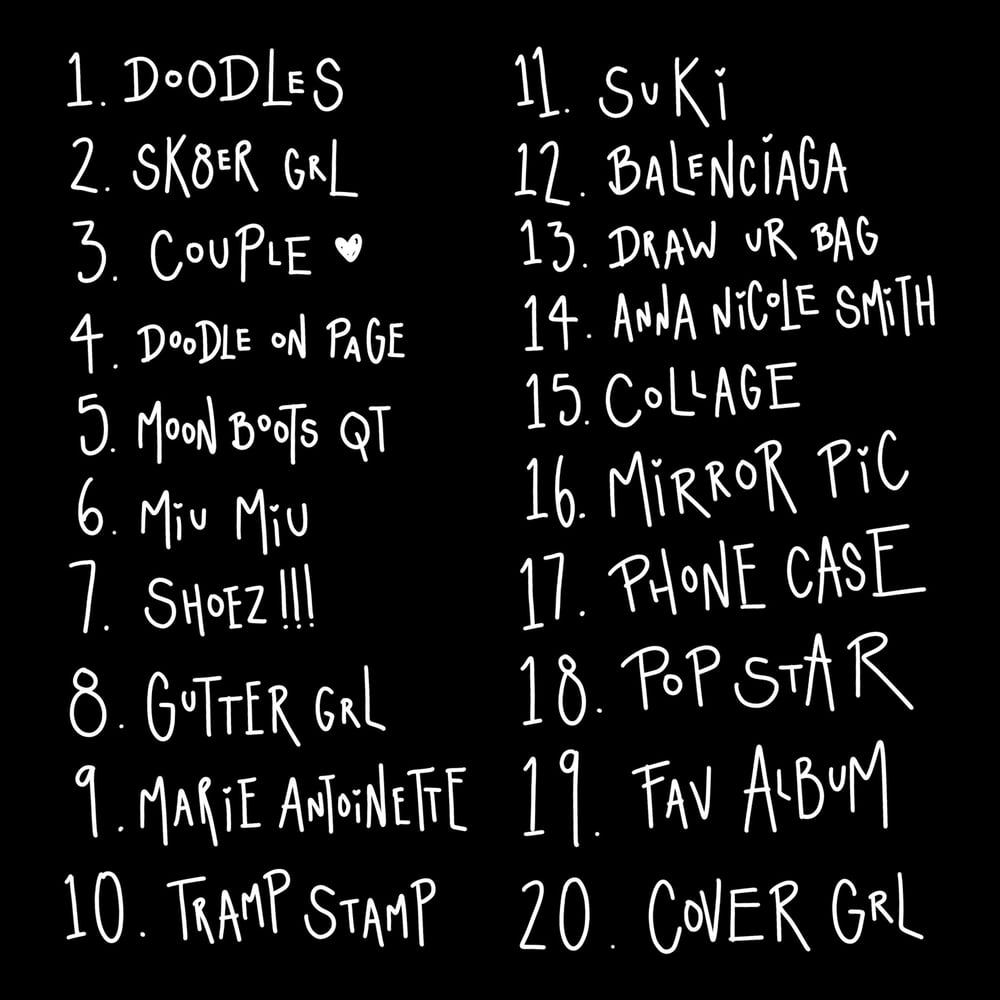 1. DOODLES
2. SK8ER GRL
3. COUPLE ♥
4. DOODLE ON PAGE
5. MOON BOOTS QT
6. MiU MiU
7. SHOEZ!!!
8. GUTTER GRL
9. MARiE ANTOiNETTE
10. TRAMP STAMP
11. SUKi
12. BALENCiAGA
13. DRAW UR BAG
14. ANNA NiCOLE SMiTH
15. COLLAGE
16. MiRROR PiC
17. PHONE CASE
18. POP STAR
19. FAV ALBUM
20. COVER GRL